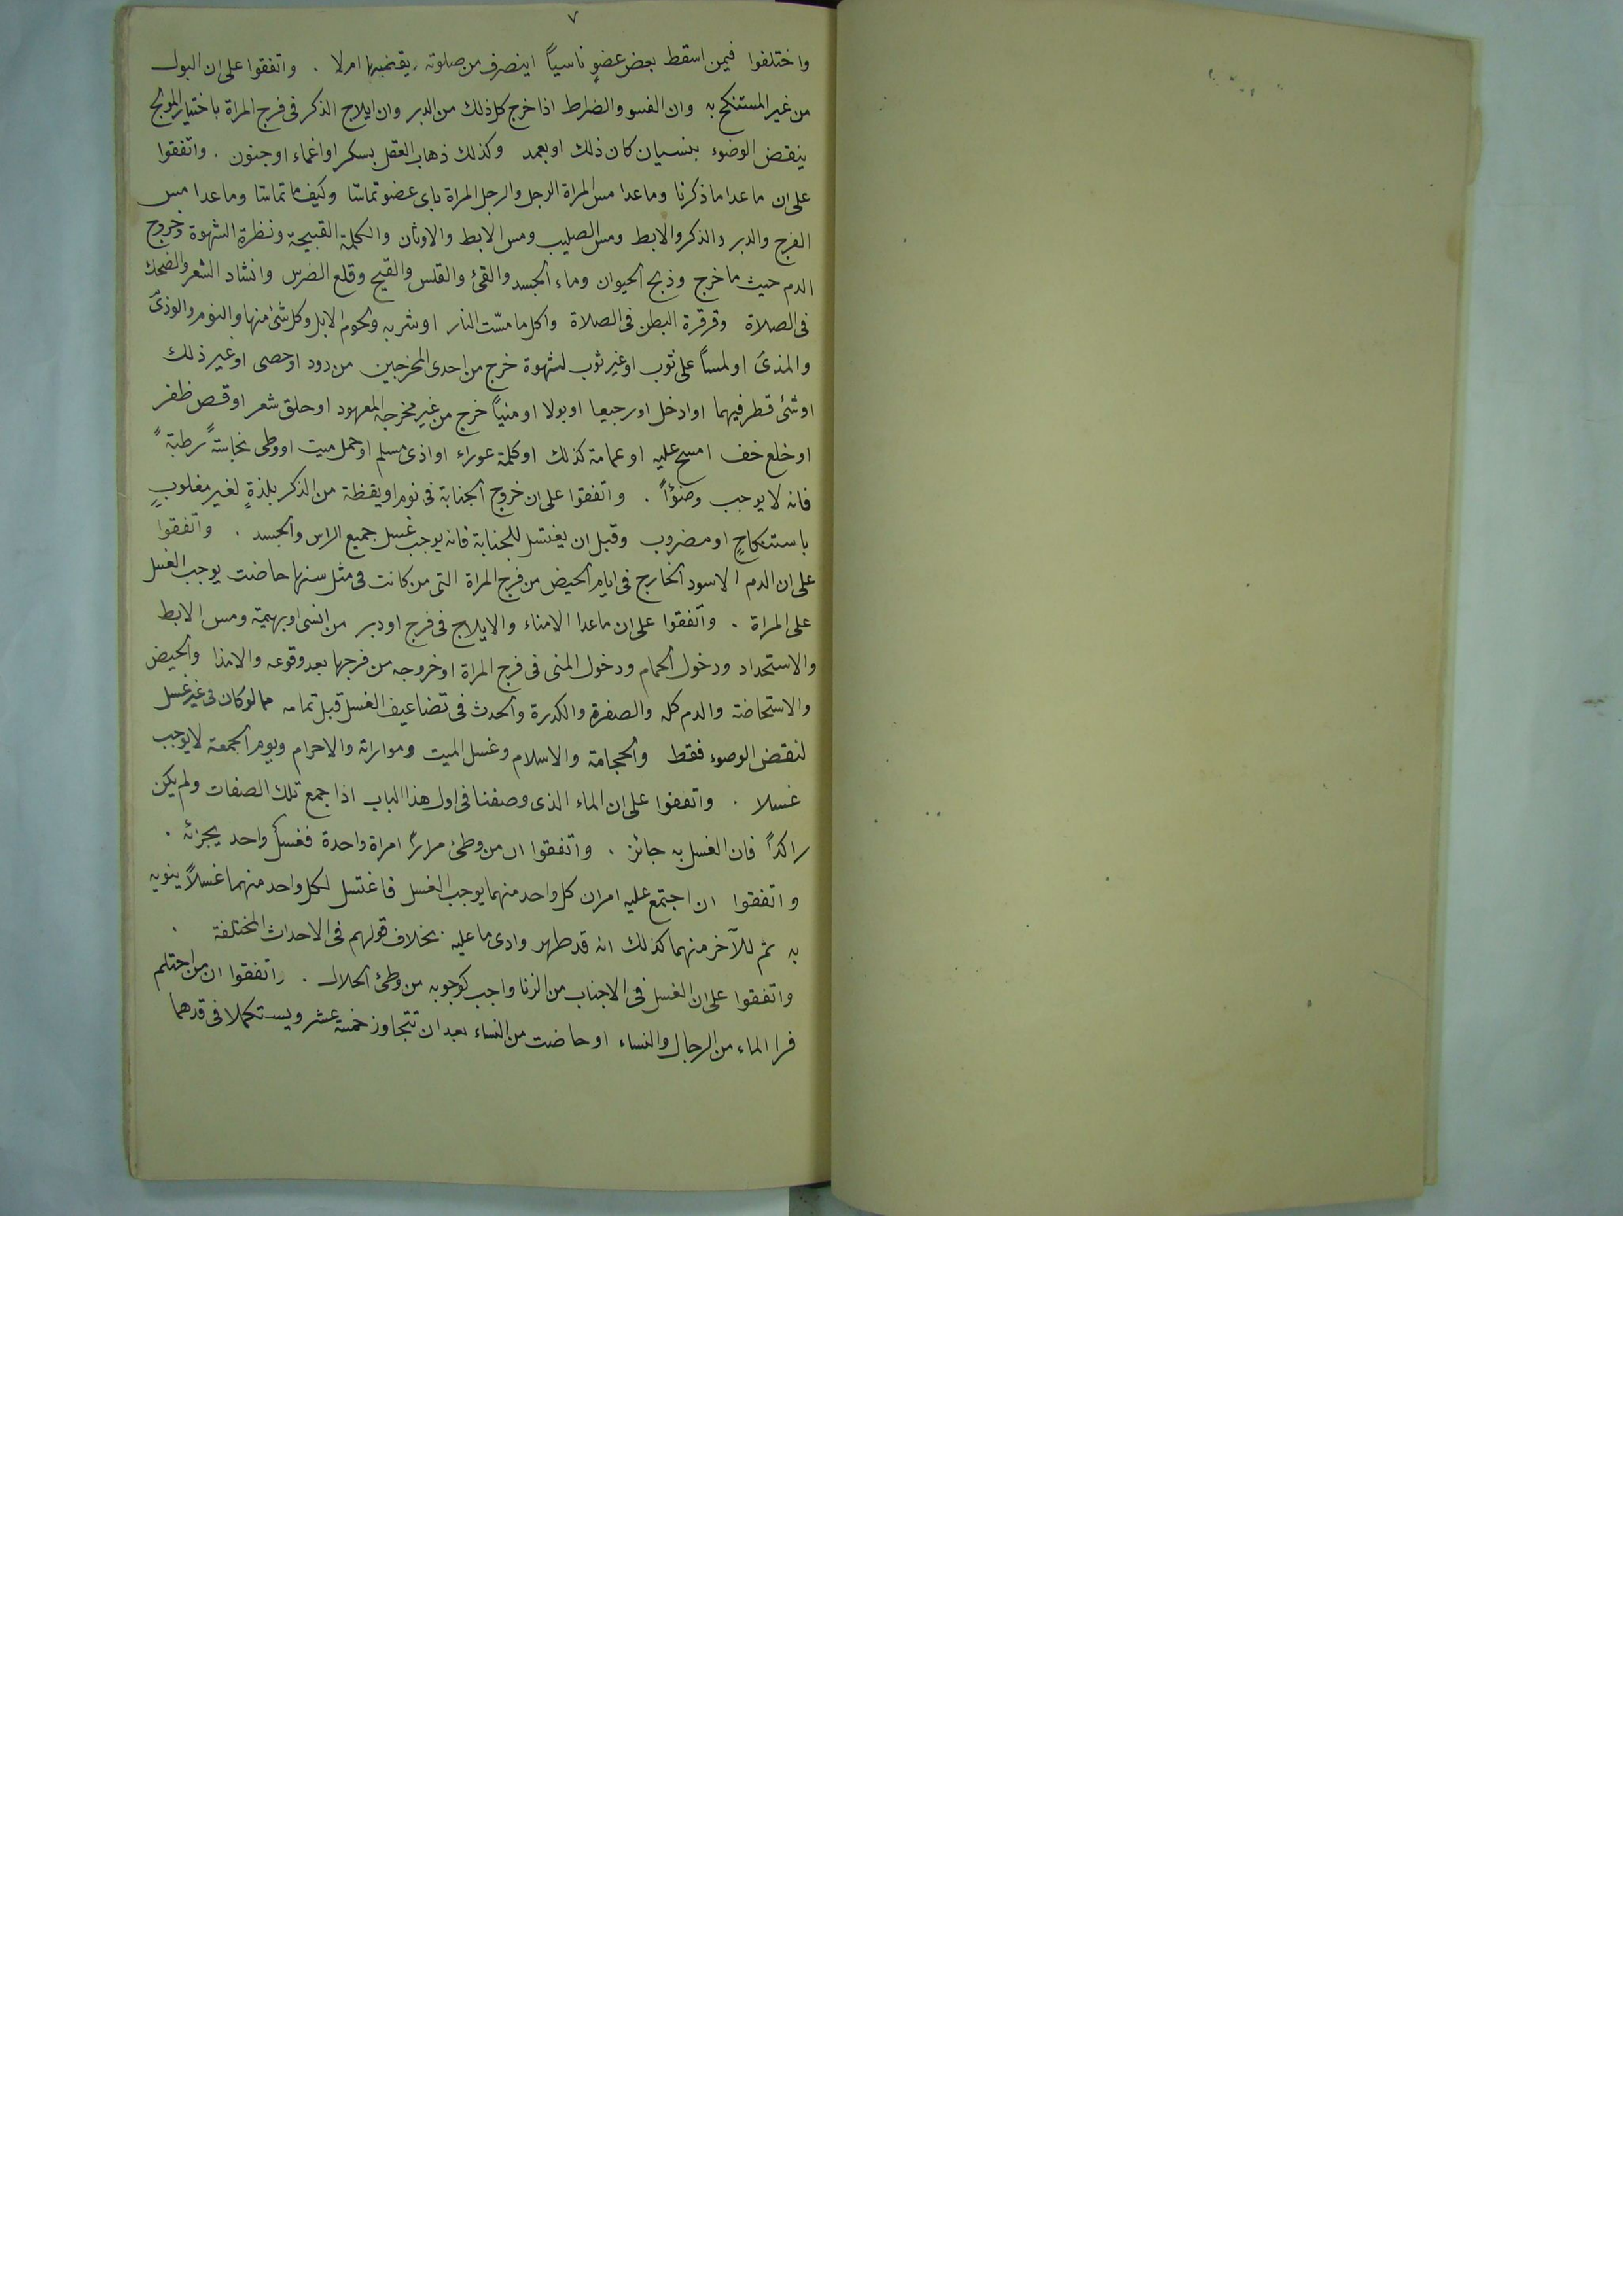 ٧
واختلفوا فيمن اسقط بعض عضوٍ ناسياً اينصرف من صلوته يقضيها ام لا . واتفقوا على ان البول
من غير المستنكح به وان الفسو والضراط اذا خرج كل ذلك من الدبر وان ايلاج الذكر فى فرج المراة باختيار المولج
ينقض الوضوء بنسيان كان ذلك او بعمد وكذلك ذهاب العقل بسكر او اغماء او جنون . واتفقوا
على ان ما عدا ما ذكرنا وما عدا مس المراة الرجل والرجل المراة باى عضو تماسّا وكيف ما تماسّا وما عدا مس
الفرج والدبر والذكر والابط ومس الصليب ومس الابط والاوثان والكلمة القبيحة ونظرة الشهوة وخروج
الدم حيث ما خرج وذبح الحيوان وماء الجسد والقئ والقلس والقيح وقلع الضرس وانشاد الشعر والضحك
فى الصلاة وقرقرة البطن فى الصلاة واكل ما مسّت النار او شربه ولحوم الابل وكل شئ منها والنوم والوذى
والمذى او لمساً على ثوب او غير ثوب لشهوة خرج من احدى المخرجين من دود او حصى او غير ذلك
او شئ قطر فيهما او ادخل او رجيعا او بولا او منياً خرج من غير مخرجه المعهود او حلق شعر او قص ظفر
او خلع خف امسح عليه او عمامة كذلك او كلمة عوراء او اذى مسلم او حمل ميت او وطى نجاسةً رطبةً
فانه لا يوجب وضؤاً . واتفقوا على ان خروج الجنابة فى نوم او يقظة من الذكر بلذةٍ لغير مغلوبٍ
باستنكاحٍ او مضروب وقبل ان يغتسل للجنابة فانه يوجب غسل جميع الراس والجسد . واتفقوا
على ان الدم الاسود الخارج فى ايام الحيض من فرج المراة التى من كانت فى مثل سنها حاضت يوجب الغسل
على المراة . واتفقوا على ان ما عدا الامناء والايلاج فى فرج او دبر من انسى او بهيمة ومس الابط
والاستحداد ودخول الحمام ودخول المنى فى فرج المراة او خروجه من فرجها بعد وقوعه والامذا والحيض
والاستحاضة والدم كله والصفرة والكدرة والحدث فى تضاعيف الغسل قبل تمامه مما لو كان فى غير غسل
لنقض الوضوء فقط والحجامة والاسلام وغسل الميت ومواراته والاحرام ويوم الجمعة لا يوجب
غسلا . واتفقوا على ان الماء الذى وصفنا فى اول هذا الباب اذا جمع تلك الصفات ولم يكن
راكداً فان الغسل به جائز . واتفقوا ان من وطئ مراراً امراة واحدة فغسل واحد يجزئه .
واتفقوا ان اجتمع عليه امران كل واحد منهما يوجب الغسل فاغتسل لكل واحد منهما غسلاً ينويه
به ثم للآخر منهما كذلك انه قد طهر وادى ما عليه بخلاف قولهم فى الاحداث المختلفة .
واتفقوا على ان الغسل فى الاجناب من الزنا واجب كوجوبه من وطئ الحلال . واتفقوا ان من احتلم
فرا الماء من الرجال والنساء او حاضت من النساء بعد ان تتجاوز خمسة عشر ويستكملا فى قدهما